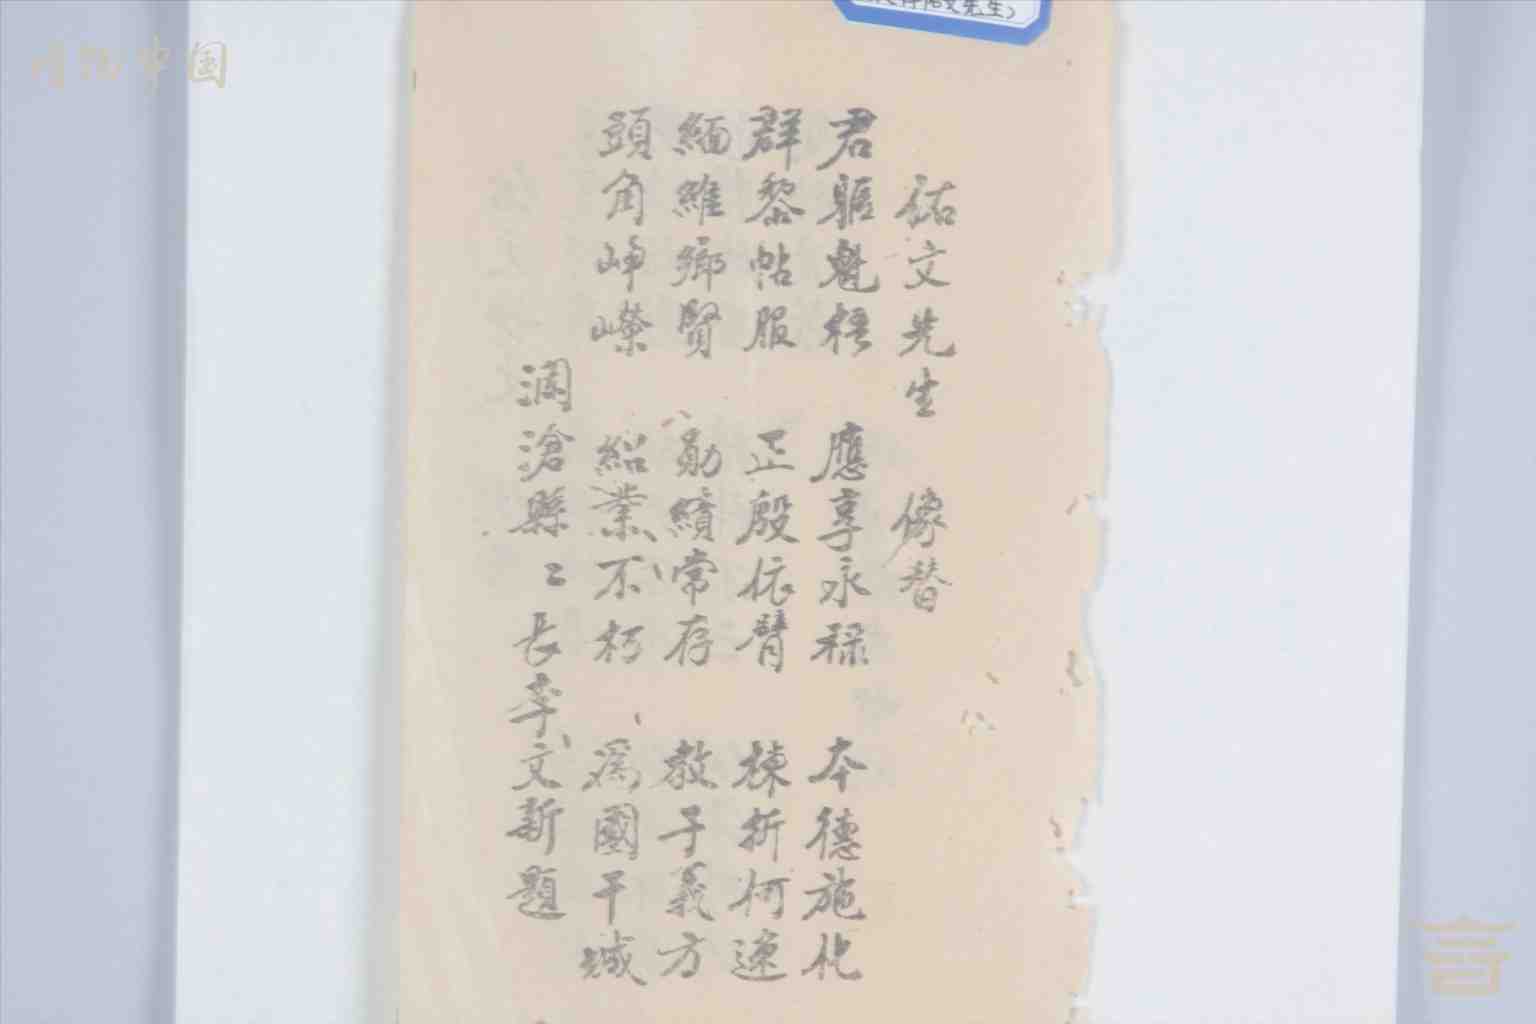 祐文先生）
祐文先生 像替
君軀魁梧 應享永祿 本德施化
群黎帖服 正殷依臂 棟折何速
緬維鄉賢 勛績常存 教子義方
頭角崢嶸 紹業不朽 為國干城
瀾滄縣〻長李文新題
中国